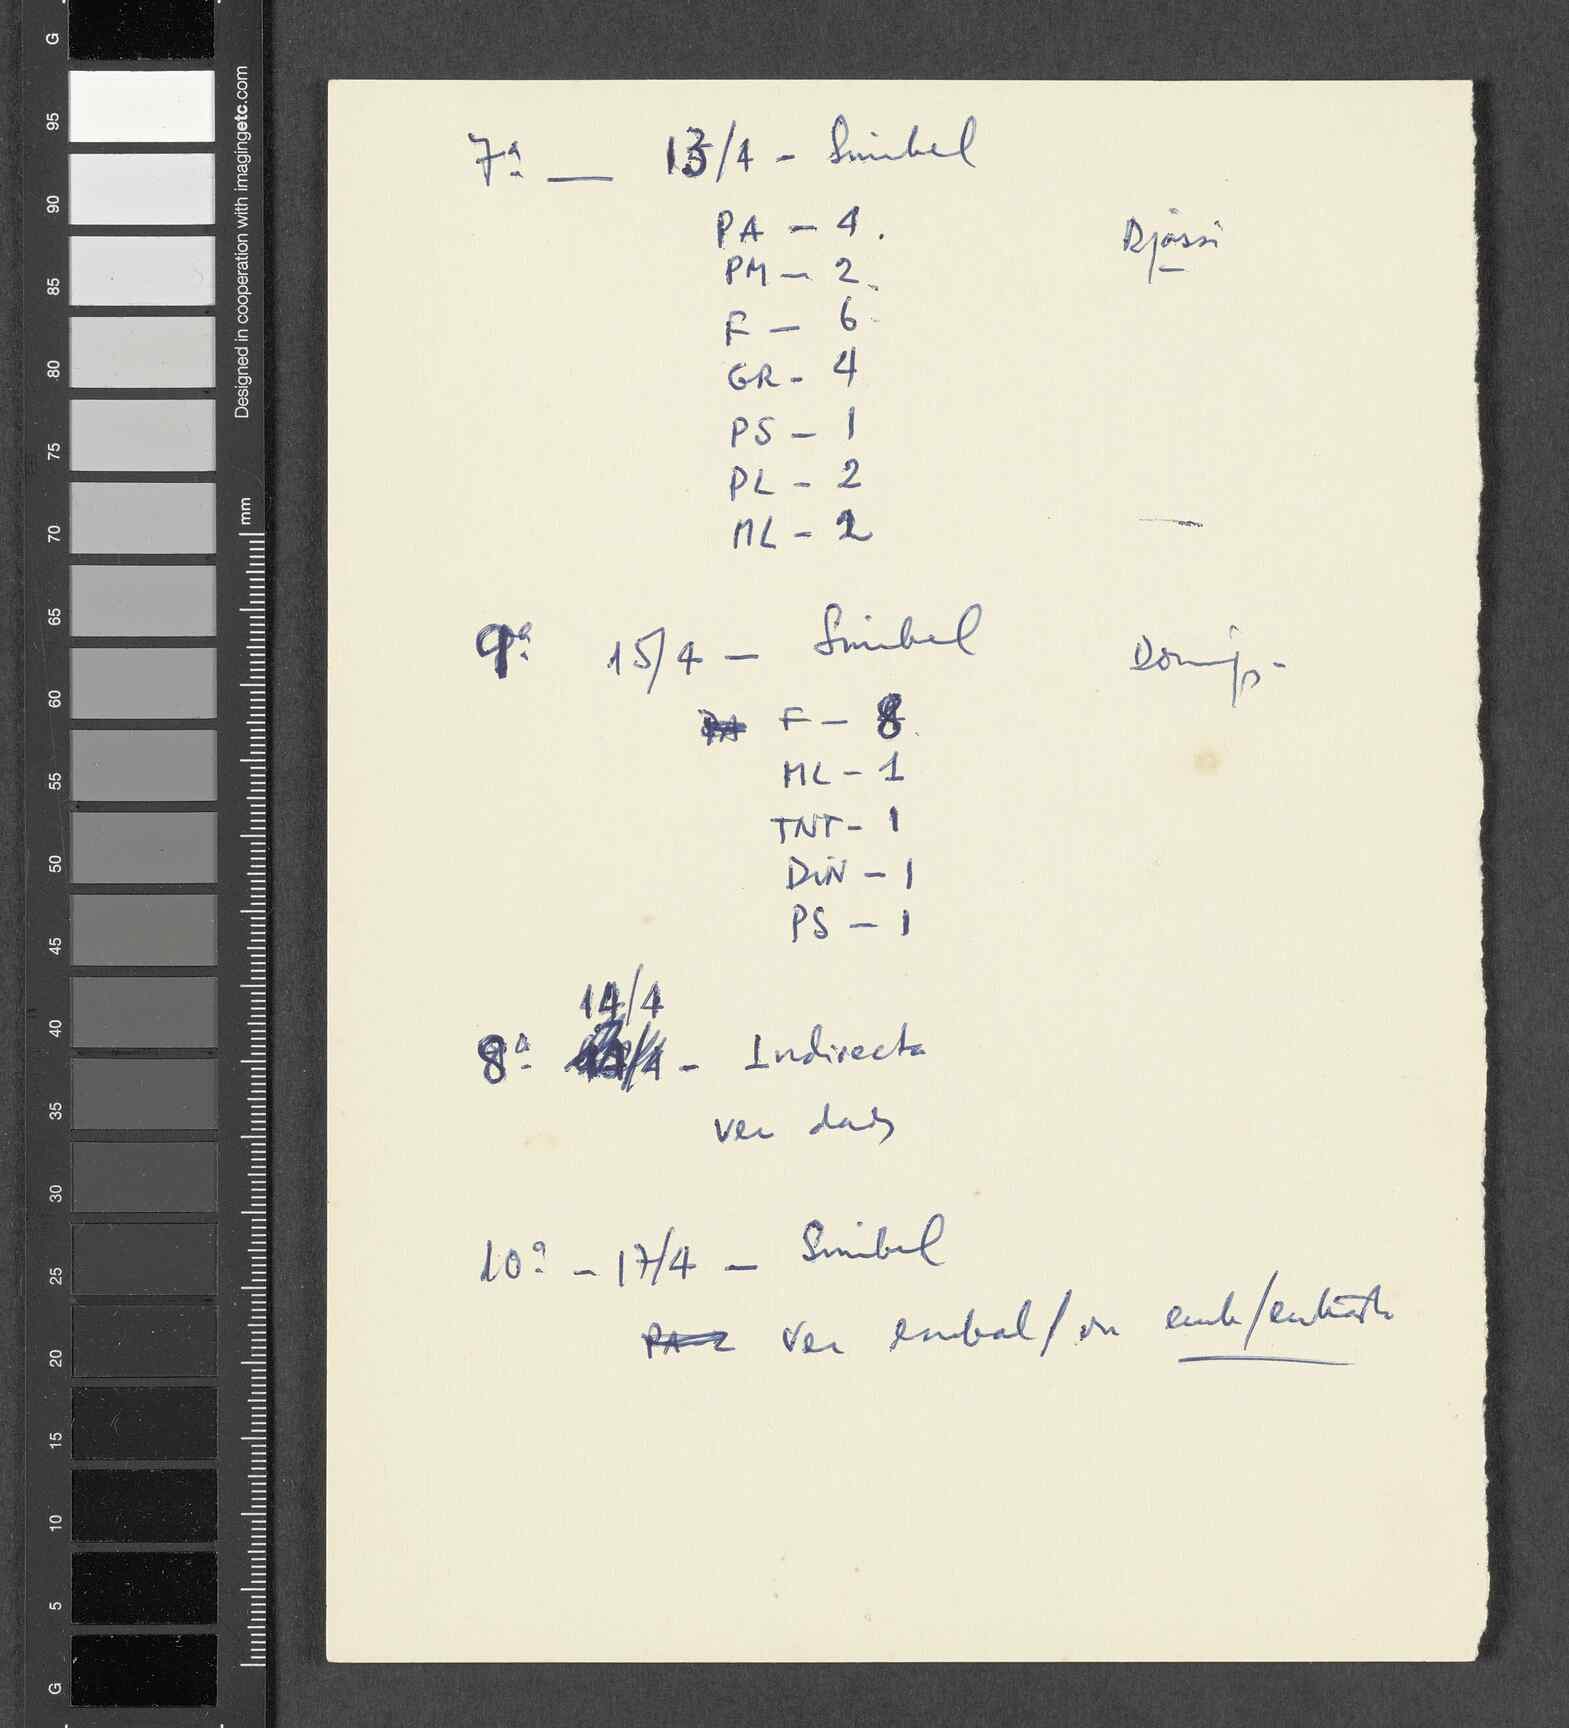 7ª — 13/4 - Simbel
PA - 4. Djassi
PM - 2
F - 6
GR - 4
PS - 1
PL - 2
ML - 2
9ª 15/4 - Simbel Doming-
F - 8
ML - 1
TNT - 1
DIN - 1
PS - 1
14/4
8ª - Indirecta
ver dados
10ª - 17/4 - Simbel
ver embal/
G
95
90
85
80
75
70
65
60
55
50
45
40
35
30
25
20
15
10
5
G
Designed in cooperation with imagingetc.com
mm